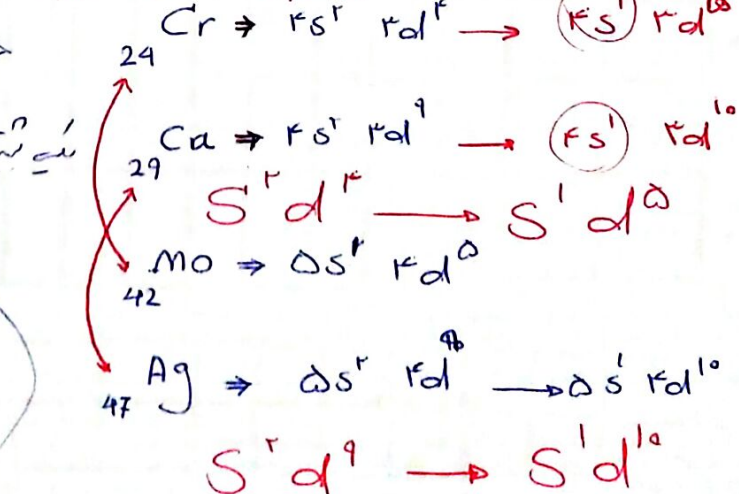 24 Cr ⇒ ۴s۲ ۳d۴ → ۴s۱ ۳d۵
29 Cu ⇒ ۴s۲ ۳d۹ → ۴s۱ ۳d۱۰
S۲ d۴ → S۱ d۵
42 Mo ⇒ ۵s۲ ۴d۵
47 Ag ⇒ ۵s۲ ۴d → ۵s۱ ۴d۱۰
S۲ d۹ → S۱ d۱۰